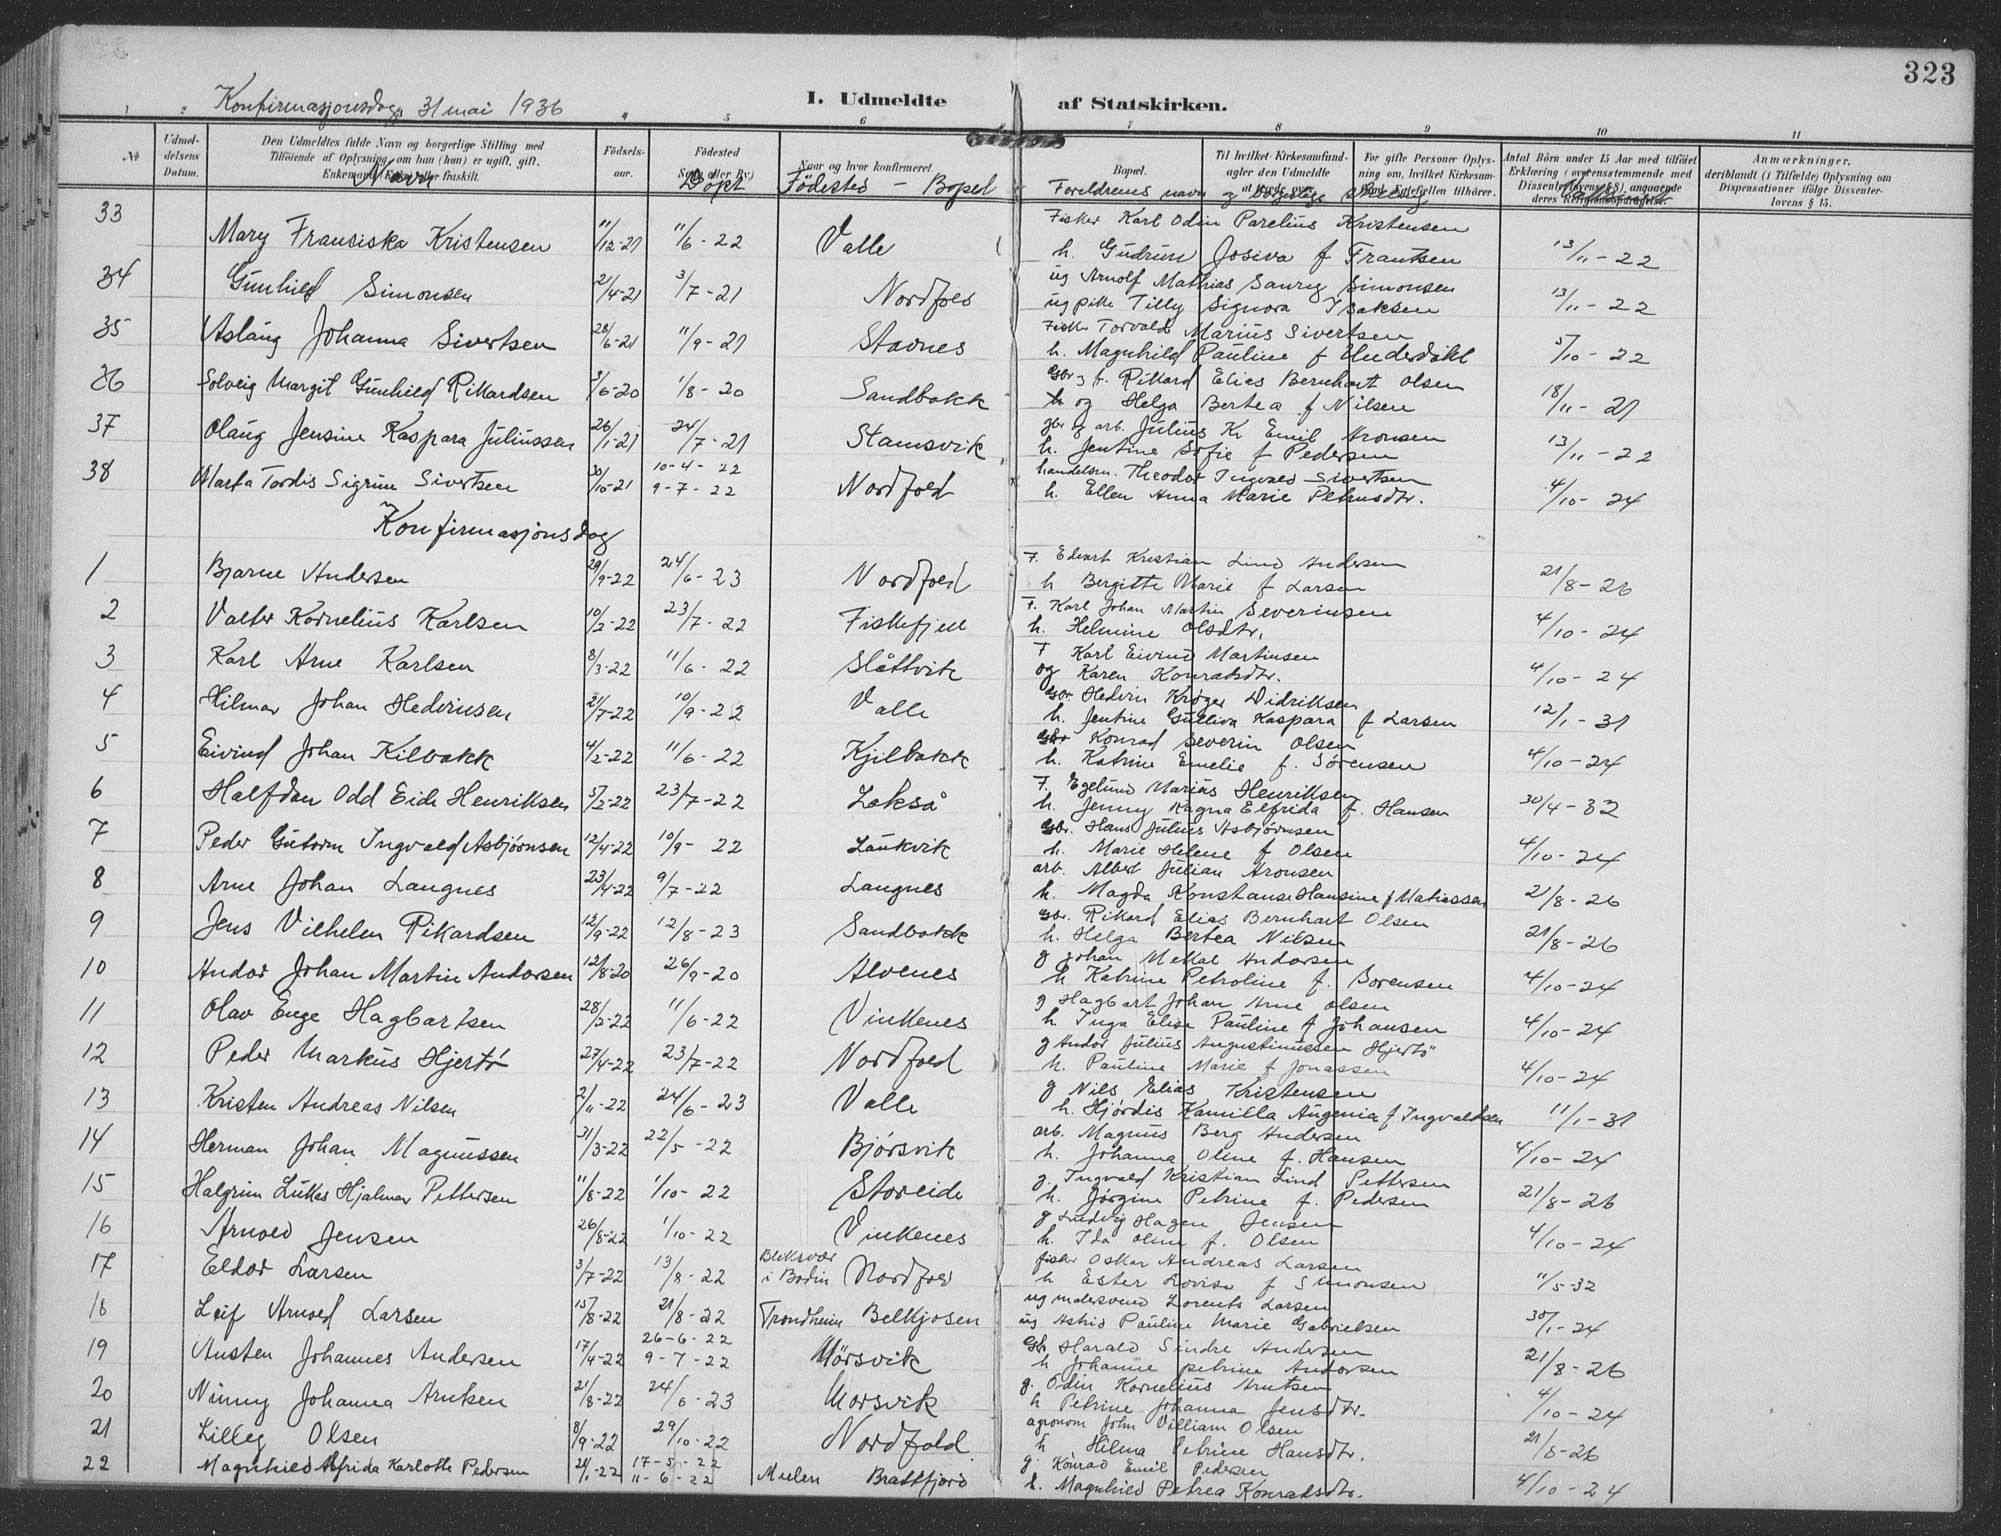 323
Konfirmasjonsdag 31 mai 1936
I. Udmeldte af Statskirken.
1 2 4 5 6 7 8 9 10 11
No Udmeldelsens Datum. Den Udmeldtes fulde Navn og borgerlige Stilling med Tilföiende af Oplysning, om han (hun) er ugift, gift, Enkemand (Enke) eller fraskilt. Födselsaar. Födested Naar og hvor konfirmeret. Bopæl. Til hvilket Kirkesamfund agter den Udmeldte at træde over. For gifte Personer Oplysning om, hvilket Kirkesamfund Egtefællen tilhörer. Antal Börn under 15 Aar med tilföiet Erklæring (i overensstemmende med Dissenterlovens § 8) angaaende deres Religionsopdragelse. Anmærkninger, deriblandt (i Tilfælde) Oplysning om Dispensationer ifölge Dissenterlovens § 15.
Navn Döpt Födested - Bopel Foreldrenes navn og borgerlige stilling
33 Fisker Karl Odin Parelius Kristensen
Mary Fransiska Kristensen 11/12-21 11/6-22 Valle h. Gudrun Josiva f Frantsen 13/11-22
34 Gunhild Simonsen 21/4-21 3/7-21 Nordfold ug Arnolf Mathias Sanrg Simonsen
ug pike Tilly Signora Isaksen 13/11-22
35 Aslaug Johanna Sivertsen 28/6-21 11/9-21 Stavnes Fisker Torvald Marius Sivertsen
h. Magnhild Pauline f Underdahl 5/10-22
36 Solveig Margit Gunhild Rikardsen 3/6-20 1/8-20 Sandbakk Gbr og f. Rikard Elias Bernhart Olsen
h og Helga Bertea f Nilsen 18/11-21
37 Olaug Jensine Kaspara Juliussen 26/1-21 24/7-21 Stamsvik gbr og arb. Julius Kr Emil Aronsen
h. Jentine Sofie f Pedersen 13/11-22
38 Marta Tordis Sigrun Sivertsen 30/10-21 10-4-22 9-7-22 Nordfold handelsm. Theodor Ingvald Sivertsen
h. Ellen Anna Marie Petersdtr. 4/10-24
Konfirmasjonsdag
1 Bjarne Andersen 29/9-22 24/6-23 Nordfold F. Edvart Kristian Lind Andersen
h Bergitte Marie f Larsen 21/8-26
2 Valter Kornelius Karlsen 10/2-22 23/7-22 Fiskefjell F. Karl Johan Martin Severinsen
h. Helmine Olsdtr. 4/10-24
3 Karl Arne Karlsen 8/3-22 11/6-22 Slåttvik F Karl Eivind Martinsen
og Karen Konradsdtr. 4/10-24
4 Hilmar Johan Hedvinsen 21/7-22 10/9-22 Valle Gbr Hedvin Krøger Didriksen
h. Jentine Gulliva Kaspara f Larsen 12/1-31
5 Eivind Johan Kilbakk 4/2-22 11/6-22 Kjilbakk Gbr Konrad Severin Olsen
h. Katrine Emelie f. Sørensen 4/10-24
6 Halfdan Odd Eide Henriksen 5/2-22 23/7-22 Lakså F. Egelund Marius Henriksen
h. Jenny Ragna Elfrida f. Hansen 30/4-32
7 Peder Gutorm Ingvald Asbjørnsen 12/4-22 10/9-22 Laukvik Gbr. Hans Julius Asbjørnsen
h. Marie Helene f Olsen 4/10-24
8 Arne Johan Langnes 23/4-22 9/7-22 Langnes arb. Albert Julian Aronsen
h. Magda Konstanse Hansine f Matiassen 21/8-26
9 Jens Vilhelm Rikardsen 12/9-22 12/8-23 Sandbakk Gbr. Rikard Elias Bernhart Olsen
h. Helga Bertea Nilsen 21/8-26
10 Andor Johan Martin Andorsen 12/8-20 26/9-20 Alvenes g Johan Mekal Andorsen
h Katrine Petroline f. Sorensen 4/10-24
11 Olav Enge Hagbartsen 28/2-22 11/6-22 Vinkenes g Hagbart Johan Arne Olsen
h Inga Elise Pauline f Johansen 4/10-24
12 Peder Markus Hjertø 27/4-22 23/7-22 Nordfold g Andor Julius Augustinussen Hjertö
h. Pauline Marie f Jonassen 4/10-24
13 Kristen Andreas Nilsen 2/11-22 24/6-23 Valle g Nils Elias Kristensen
h. Hjördis Kamilla Augenia f Ingvaldsen 11/1-31
14 Herman Johan Magnussen 31/3-22 22/5-22 Bjørsvik arb. Magnus Berg Andersen
h. Johanna Oline f. Hansen 4/10-24
15 Halgrim Lukas Hjalmar Pettersen 11/8-22 1/10-22 Storeide g. Ingvald Kristian Lind Pettersen
h. Jørgine Petrine f. Pedersen 21/8-26
16 Arnold Jensen 26/8-22 1/10-22 Vinkenes g Ludvig Hagen Jensen
h. Ida Oline f. Olsen 4/10-24
17 Eldor Larsen 3/7-22 13/8-22 Bliksvær i Bodin Nordfold fisker Oskar Andreas Larsen
h Ester Lovise f Simonsen 11/5-32
18 Leif Arnold Larsen 15/8-22 21/8-22 Trondheim Belkjosen ug malersvend Lorents Larsen
ug Astrid Pauline Marie Gabrielsen 30/1-24
19 Austen Johannes Andersen 17/4-22 26-6-22 9-7-22 Mørsvik Gbr Harald Sindre Andersen
h Johanne petrine Andorsen 21/8-26
20 Ninny Johanna Arntsen 21/8-22 24/6-23 Morsvik g. Odin Kornelius Arntsen
h Petrine Johanna Jensdtr. 4/10-24
21 Lilley Olsen 8/9-22 29/10-22 Nordfold agronom John Villiam Olsen
h Hilma Petrine Hansdtr. 21/8-26
22 Magnhild Alfrida Karlotte Pedersen 21/1-22 17-5-22 11-6-22 Mulen Brattfjord g. Konrad Emil Pedersen
h. Magnhild Petrea Konradsdtr. 4/10-24